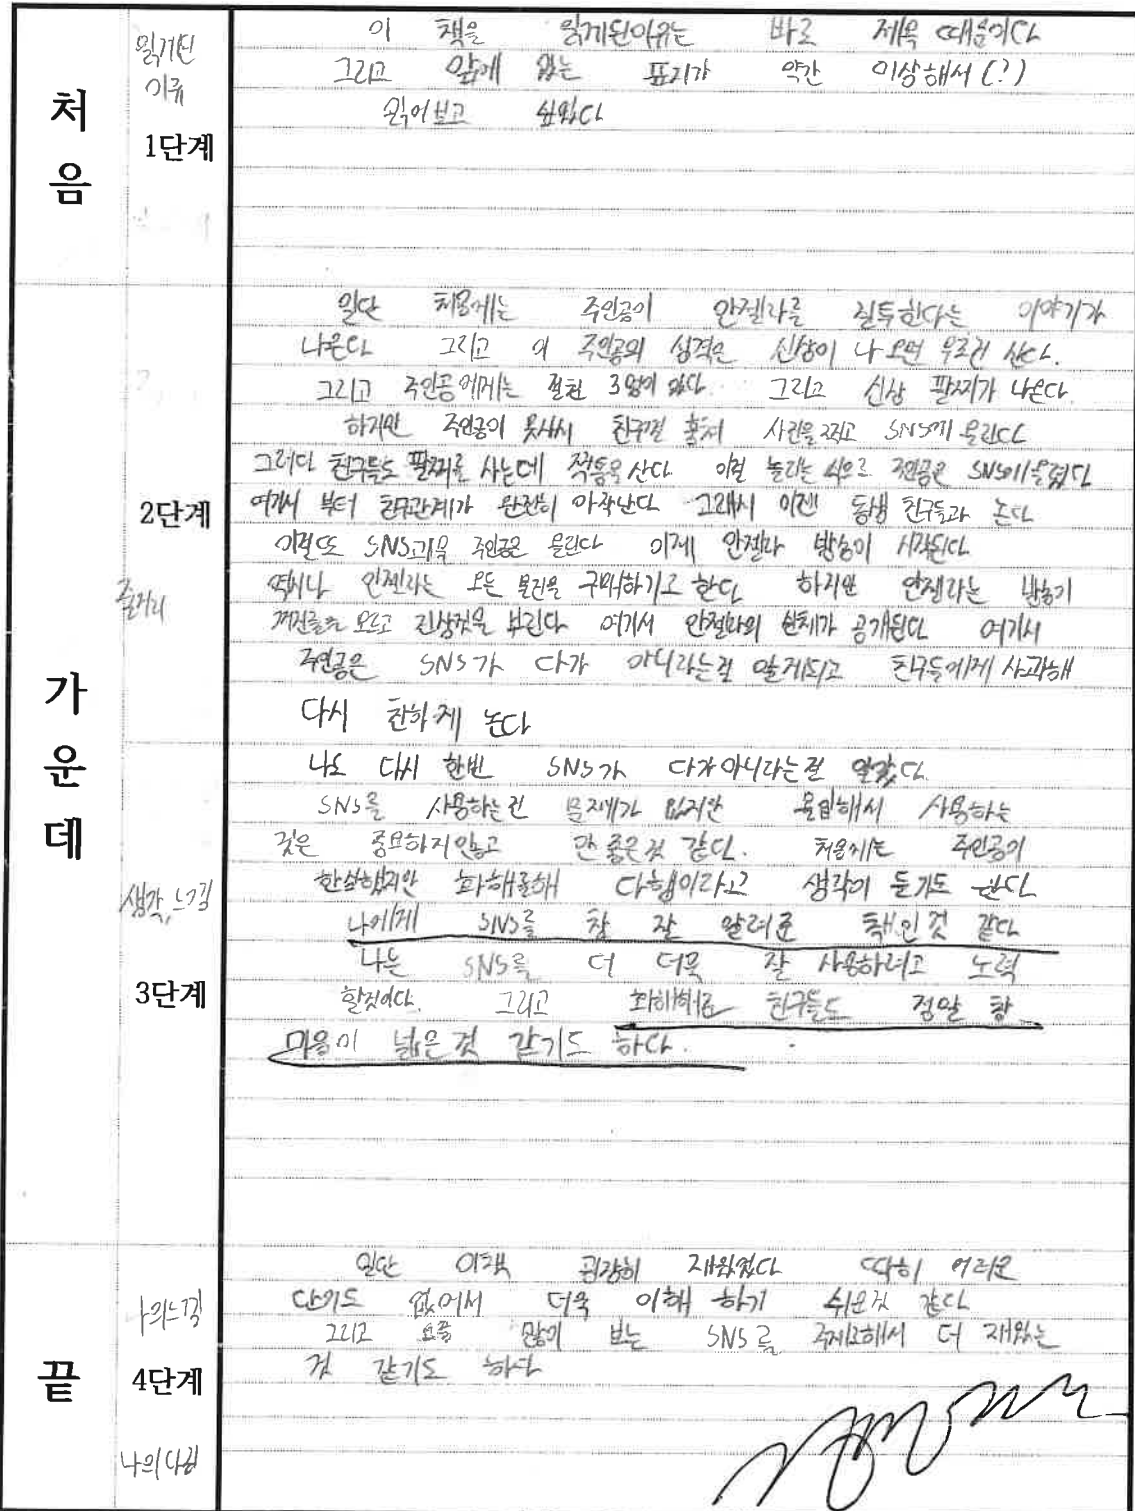 처음
읽게된
이유
1단계
이 책을 읽게된이유는 바로 제목 때문이다
그리고 앞에 있는 표지가 약간 이상해서(?)
읽어보고 싶었다
가운데
2단계
줄거리
일단 처음에는 주인공이 안젤라를 질투한다는 이야기가
나온다 그리고 이 주인공의 성격은 신상이 나오면 무조건 산다.
그리고 주인공에게는 절친 3명이 있다. 그리고 신상 팔찌가 나온다.
하지만 주인공이 못사서 친구껄 훔쳐 사진을찍고 SNS에 올린다
그러다 친구들도 팔찌를 사는데 짝퉁을 산다 이걸 놀리는 식으로 주인공은 SNS에올렸다
여기서 부터 친구관계가 완전히 아작난다 그래서 이젠 동생 친구들과 논다
이걸또 SNS에 주인공은 올린다 이제 안젤라 방송이 시작된다
역시나 안젤라는 모든 물건을 구매하기고 한다 하지만 안젤라는 방송기
모르고 진상짓을 부린다 여기서 안젤라의 실체가 공개된다 여기서
주인공은 SNS가 다가 아니라는걸 알게되고 친구들에게 사과해
다시 친하게 논다
생각, 느낌
3단계
나도 다시 한번 SNS가 다가아니라는걸 알았다.
SNS를 사용하는건 문제가 없지만 몰입해서 사용하는
것은 중요하지않고 안 좋은것 같다. 처음에는 주인공이
한심했지만 화해를해 다행이라고 생각이 듣기도 한다
나에게 SNS를 참 잘 알려준 책인것 같다
나는 SNS를 더 더욱 잘 사용하려고 노력
할것이다. 그리고 화해해준 친구들도 정말 참
마음이 넓은것 같기도 하다.
끝
나의느낌
4단계
나의다짐
일단 이책 굉장히 재밌었다 딱히 어려운
단어도 없어서 더욱 이해 하기 쉬운것 같다
그리고 요즘 많이 보는 SNS를 주제로해서 더 재밌는
것 같기도 하다